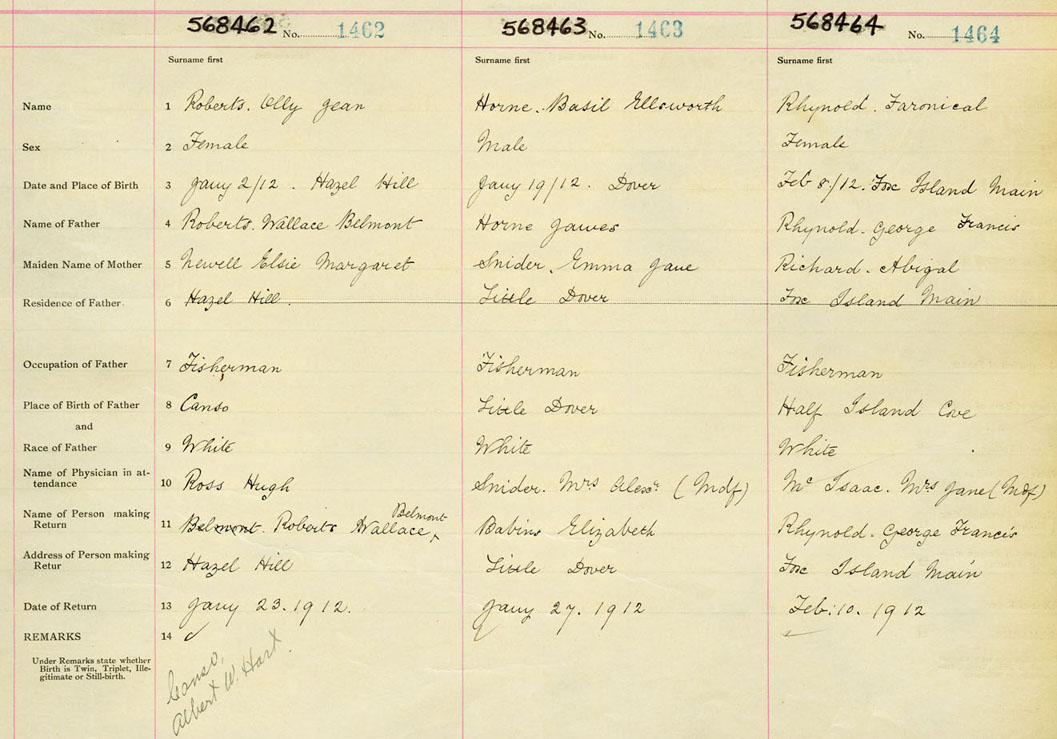 568462 No. 1462 568463 No. 1463 568464 No. 1464
Surname first Surname first Surname first
Name 1 Roberts. Olly Jean Horne. Basil Ellsworth Rhynold. Faronical
Sex 2 Female Male Female
Date and Place of Birth 3 Jany 2/12. Hazel Hill Jany 19/12. Dover Feb 8/12. Fox Island Main
Name of Father 4 Roberts. Wallace Belmont Horne James Rhynold. George Francis
Maiden Name of Mother 5 Newell Elsie Margaret Snider. Emma Jane Richard. Abigal
Residence of Father 6 Hazel Hill. Little Dover Fox Island Main
Occupation of Father 7 Fisherman Fisherman Fisherman
Place of Birth of Father 8 Canso Little Dover Half Island Cove
and
Race of Father 9 White White White
Name of Physician in at-
tendance 10 Ross Hugh Snider. Mrs Alexr (Mdf) Mc Isaac. Mrs Jane (Mdf)
Name of Person making Belmont
Return 11 Belmont. Roberts Wallace Babins Elizabeth Rhynold. George Francis
Address of Person making
Retur 12 Hazel Hill Little Dover Fox Island Main
Date of Return 13 Jany 23. 1912. Jany 27. 1912 Feb. 10. 1912
REMARKS 14
Under Remarks state whether
Birth is Twin, Triplet, Ille-
gitimate or Still-birth.
Canso,
Albert W. Hart.